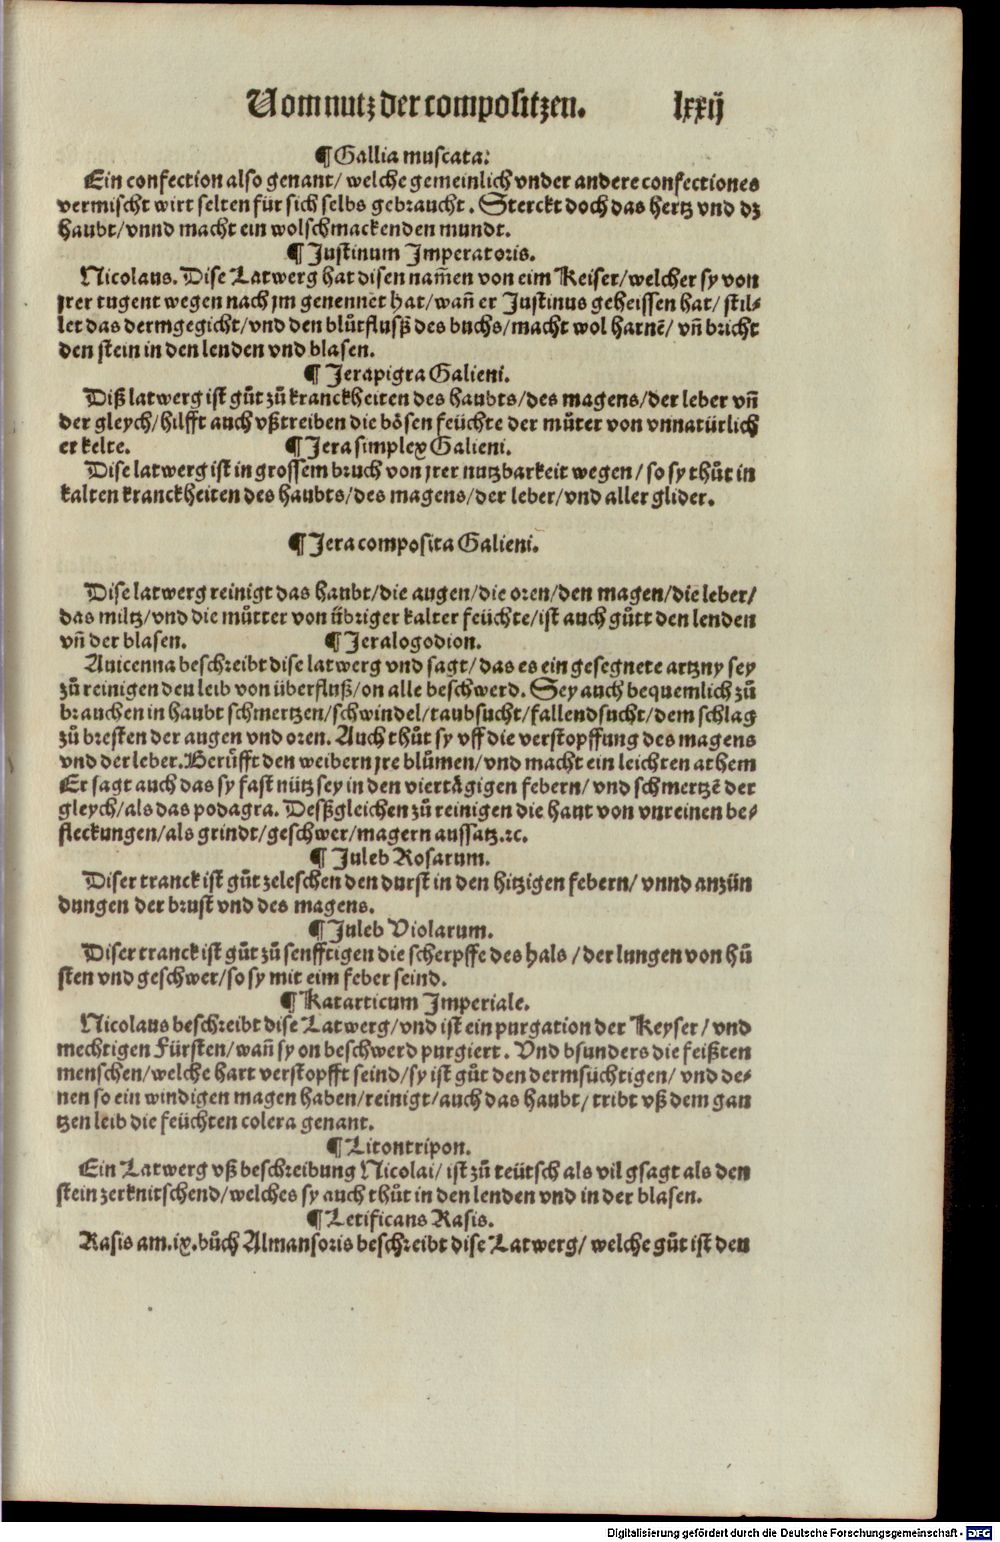 Vom nutz der compositzen. lxxij
¶ Gallia muscata:
Ein confection also genant/ welche gemeinlich vnder andere confectiones
vermischt wirt selten für sich selbs gebraucht. Sterckt doch das hertz vnd dz
haubt/vnnd macht ein wolschmackenden mundt.
¶ Justinum Imperatoris.
Nicolaus. Dise Latwerg hat disen nam̃en von eim Keiser/welcher sy von
jrer tugent wegen nach jm genennet hat/wañ er Justinus geheissen hat/ stil⸗
let das dermgegicht/vnd den blůtflusß des buchs/macht wol harnẽ/ vñ bricht
den stein in den lenden vnd blasen.
¶ Jerapigra Galieni.
Diß latwerg ist gůt zů kranckheiten des haubts/des magens/der leber vñ
der gleych/hilfft auch vßtreiben die bösen feüchte der můter von vnnatürlich
er kelte. ¶ Jera simplex Galieni.
Dise latwerg ist in grossem bruch von jrer nutzbarkeit wegen/ so sy thůt in
kalten kranckheiten des haubts/des magens/der leber/vnd aller glider.
¶ Jera composita Galieni.
Dise latwerg reinigt das haubt/die augen/die oren/den magen/die leber/
das miltz/vnd die můtter von übriger kalter feüchte/ist auch gůtt den lenden
vñ der blasen. ¶ Jeralogodion.
Auicenna beschreibt dise latwerg vnd sagt/das es ein gesegnete artzny sey
zů reinigen den leib von überfluß/on alle beschwerd. Sey auch bequemlich zů
brauchen in haubt schmertzen/schwindel/taubsucht/fallendsucht/dem schlag
zů bresten der augen vnd oren. Auch thůt sy vff die verstopffung des magens
vnd der leber. Berüfft den weibern jre blůmen/vnd macht ein leichten athem
Er sagt auch das sy fast nütz sey in den viertägigen febern/ vnd schmertzẽ der
gleych/als das podagra. Desßgleichen zů reinigen die haut von vnreinen be⸗
fleckungen/als grindt/geschwer/magern aussatz.ꝛc.
¶ Juleb Rosarum.
Diser tranck ist gůt zeleschen den durst in den hitzigen febern/ vnnd anzün
dungen der brust vnd des magens.
¶ Juleb Violarum.
Diser tranck ist gůt zů senfftigen die scherpffe des hals /der lungen von hů
sten vnd geschwer/so sy mit eim feber seind.
¶ Katarticum Imperiale.
Nicolaus beschreibt dise Latwerg/vnd ist ein purgation der Keyser/ vnd
mechtigen Fürsten/wañ sy on beschwerd purgiert. Vnd bsunders die feißten
menschen/welche hart verstopfft seind/sy ist gůt den dermsüchtigen/ vnd de⸗
nen so ein windigen magen haben/reinigt/auch das haubt/ tribt vß dem gan
tzen leib die feüchten colera genant.
¶ Litontripon.
Ein Latwerg vß beschreibung Nicolai/ ist zů teütsch als vil gsagt als den
stein zerknitschend/welches sy auch thůt in den lenden vnd in der blasen.
¶ Letificans Rasis.
Rasis am.ix.bůch Almansoris beschreibt dise Latwerg/ welche gůt ist den
Digitalisierung gefördert durch die Deutsche Forschungsgemeinschaft - DFG